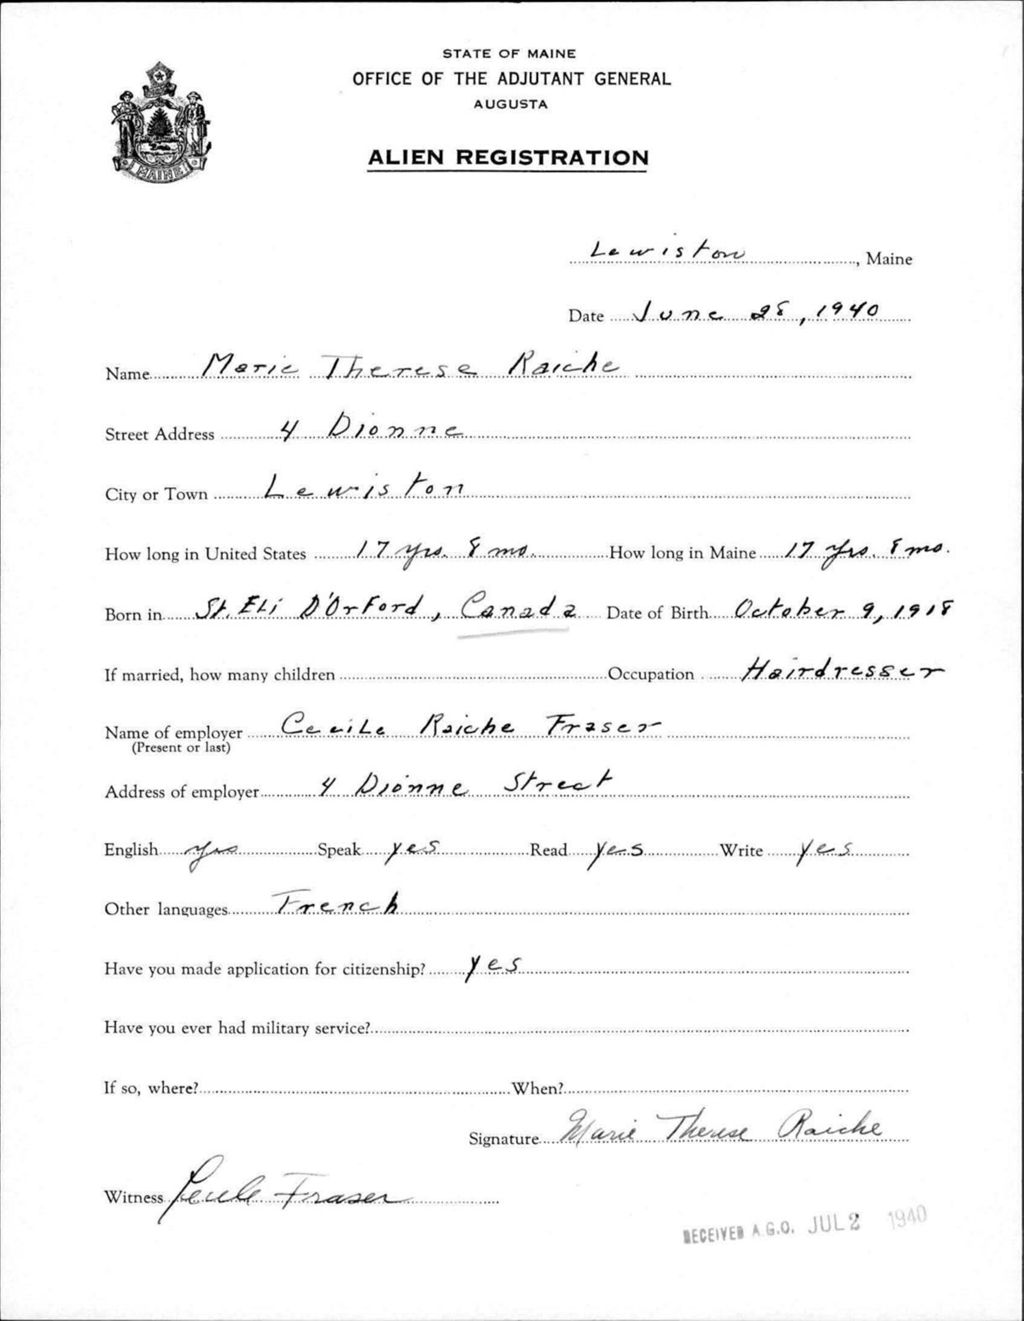 STATE OF MAINE
OFFICE OF THE ADJUTANT GENERAL
AUGUSTA
ALIEN REGISTRATION
MAINE
Lewiston, Maine
Date June 28, 1940
Name Marie Therese Raiche
Street Address 4 Dionne
City or Town Lewiston
How long in United States 17 yrs. 8 mo. How long in Maine 17 yrs. 8 mo.
Born in St. Eli D'Orford, Canada Date of Birth October 9, 1918
If married, how many children Occupation Hairdresser
Name of employer Cecile Raiche Fraser
(Present or last)
Address of employer 4 Dionne Street
English yes Speak yes Read yes Write yes
Other languages French
Have you made application for citizenship? yes
Have you ever had military service?
If so, where? When?
Signature Marie Therese Raiche
Witness Cecile Fraser
RECEIVED A.G.O. JUL 2 1940